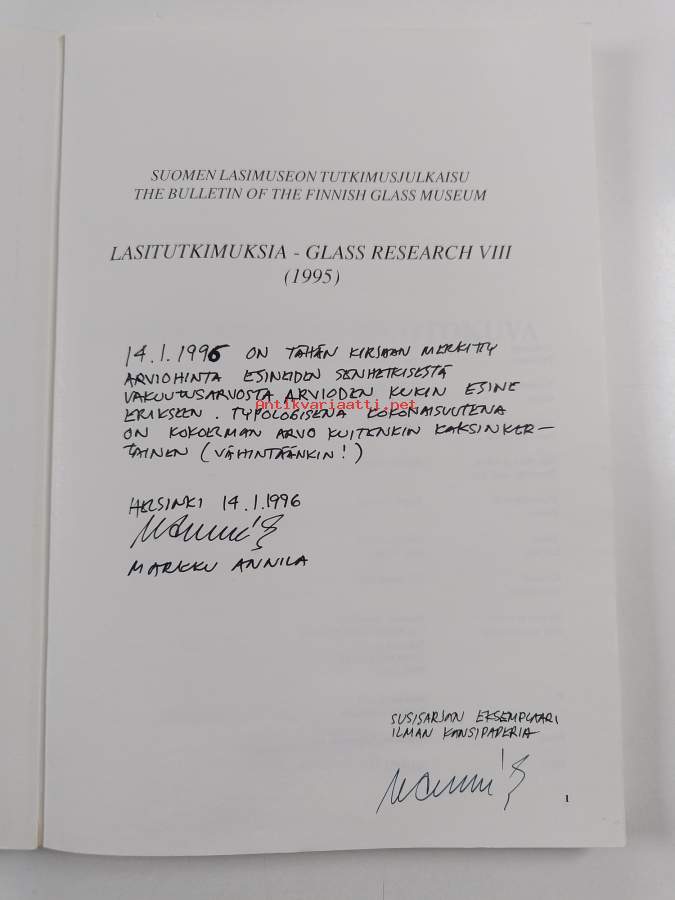 SUOMEN LASIMUSEON TUTKIMUSJULKAISU
THE BULLETIN OF THE FINNISH GLASS MUSEUM
LASITUTKIMUKSIA - GLASS RESEARCH VIII
(1995)
14.1.1996 ON TÄHÄN KIRJAAN MERKITTY
ARVIOHINTA ESINEIDEN SENHETKISESTÄ
VAKUUTUSARVOSTA ARVIOIDEN KUKIN ESINE
Antikvariaatti.net
ERIKSEEN. TYPOLOGISENA KOKONAISUUTENA
ON KOKOELMAN ARVO KUITENKIN KAKSINKER-
TAINEN (VÄHINTÄÄNKIN!)
HELSINKI 14.1.1996
MARKKU ANNILA
SUSISARJAN EKSEMPLAARI
ILMAN KANSIPAPERIA
1